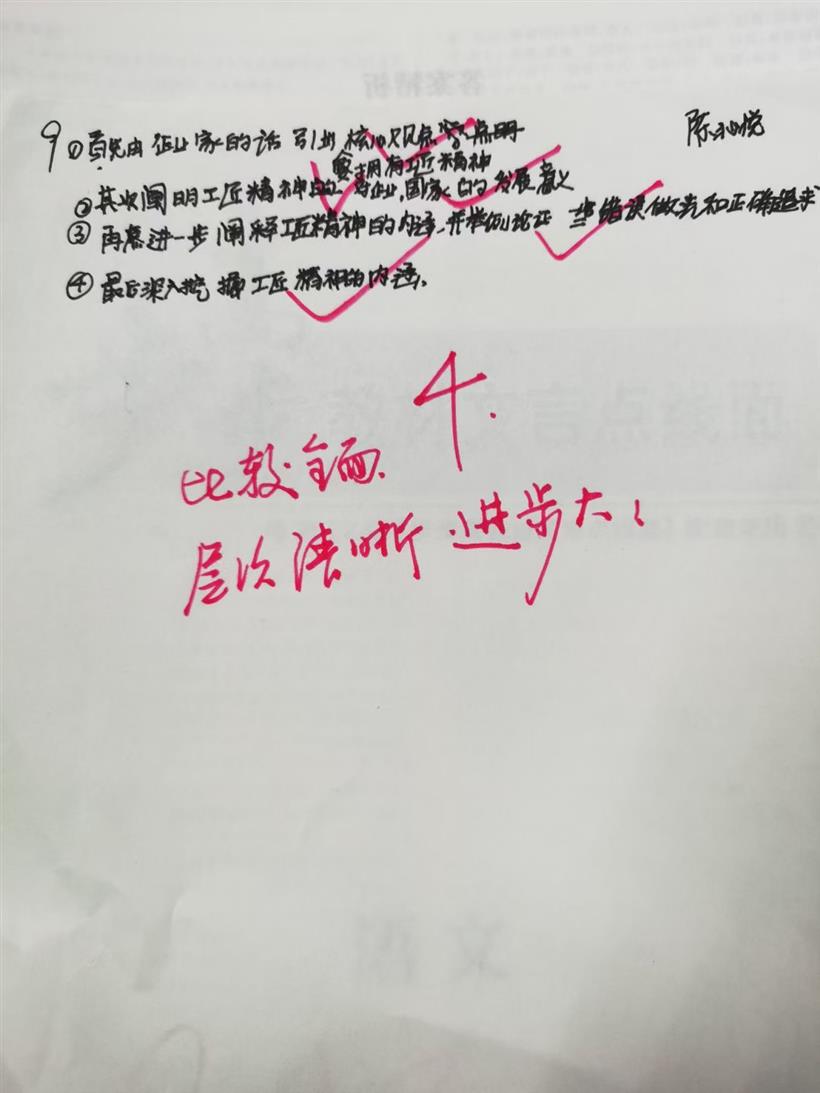 9 ①首先由企业家的话 引出 核心观点 点明
要拥有工匠精神
②其次阐明工匠精神的 与企业,国家 的发展意义
③再意进一步阐释工匠精神的内涵,并举例论证 错误做法和正确追求
④最后深入挖掘工匠精神的内涵。
陈 悦
4.
比较全面.
层次清晰 进步大!
答案精析
言点线面
文